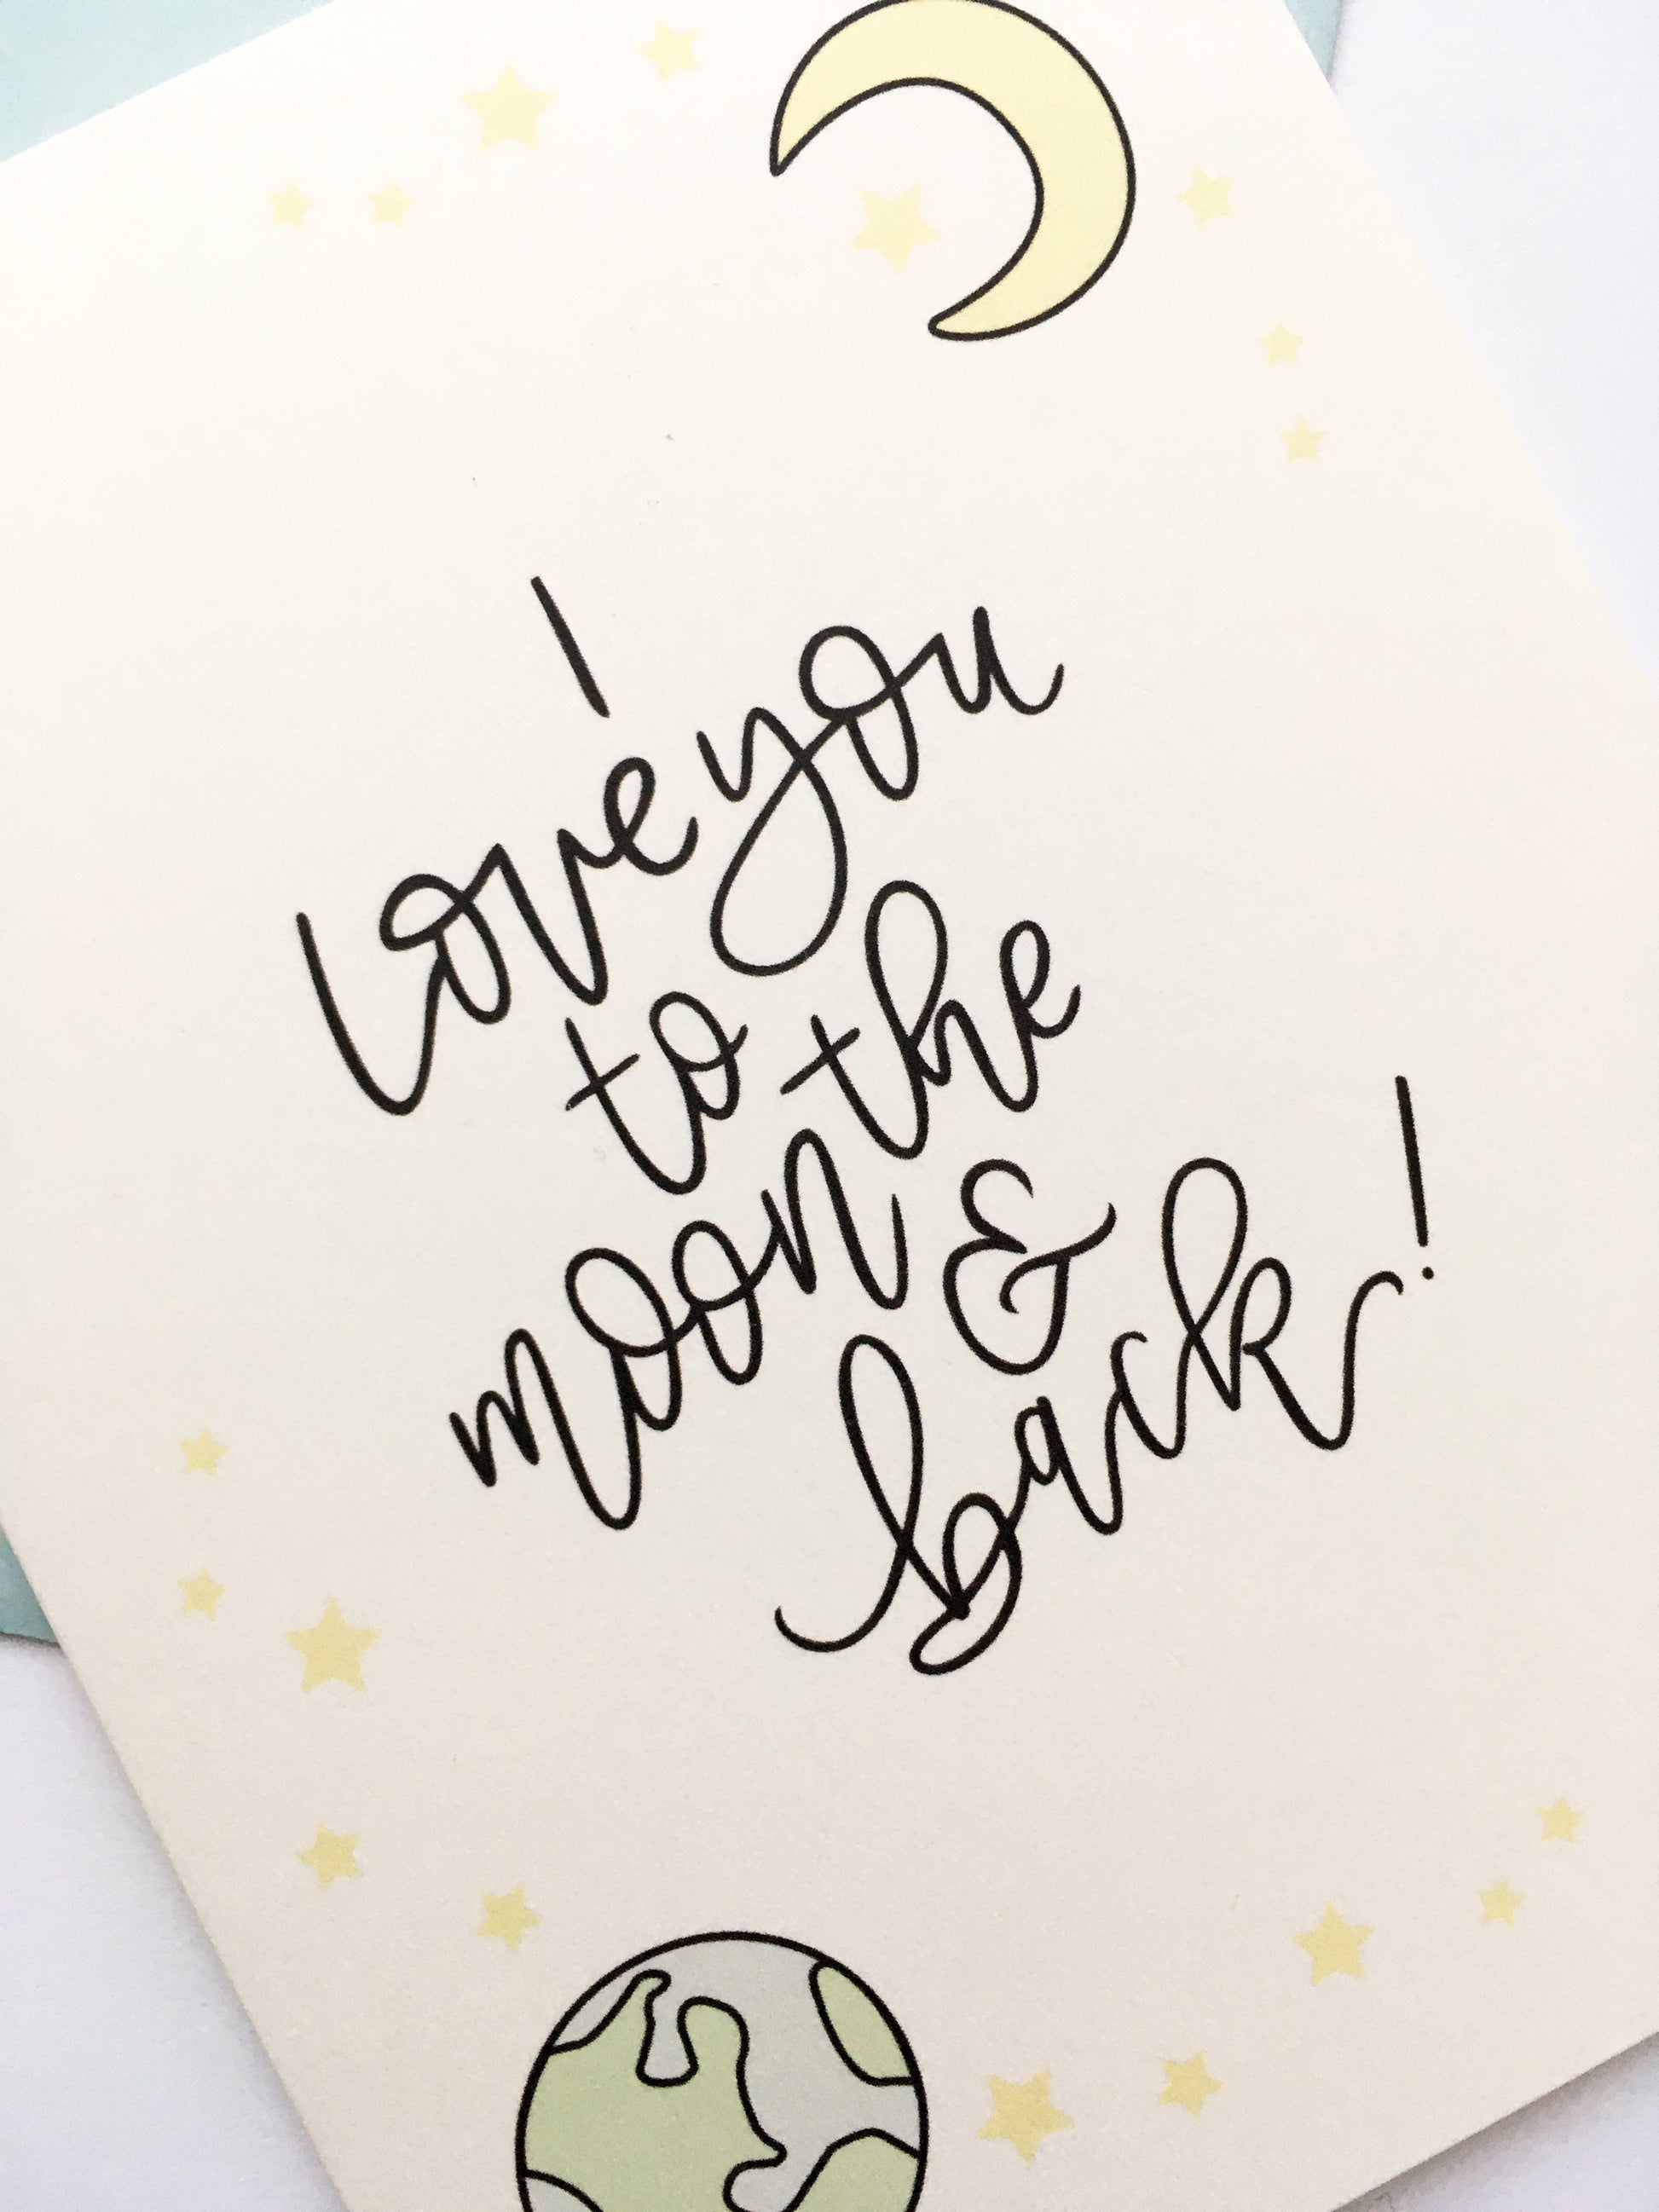 I
love you
to the
moon &
back!